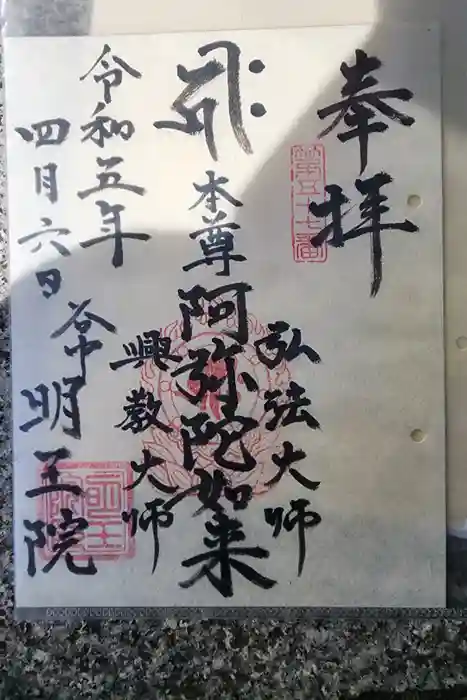 奉拝
第五十七番
弘法大師
本尊阿弥陀如来
興教大師
令和五年
四月六日
谷中
明王院